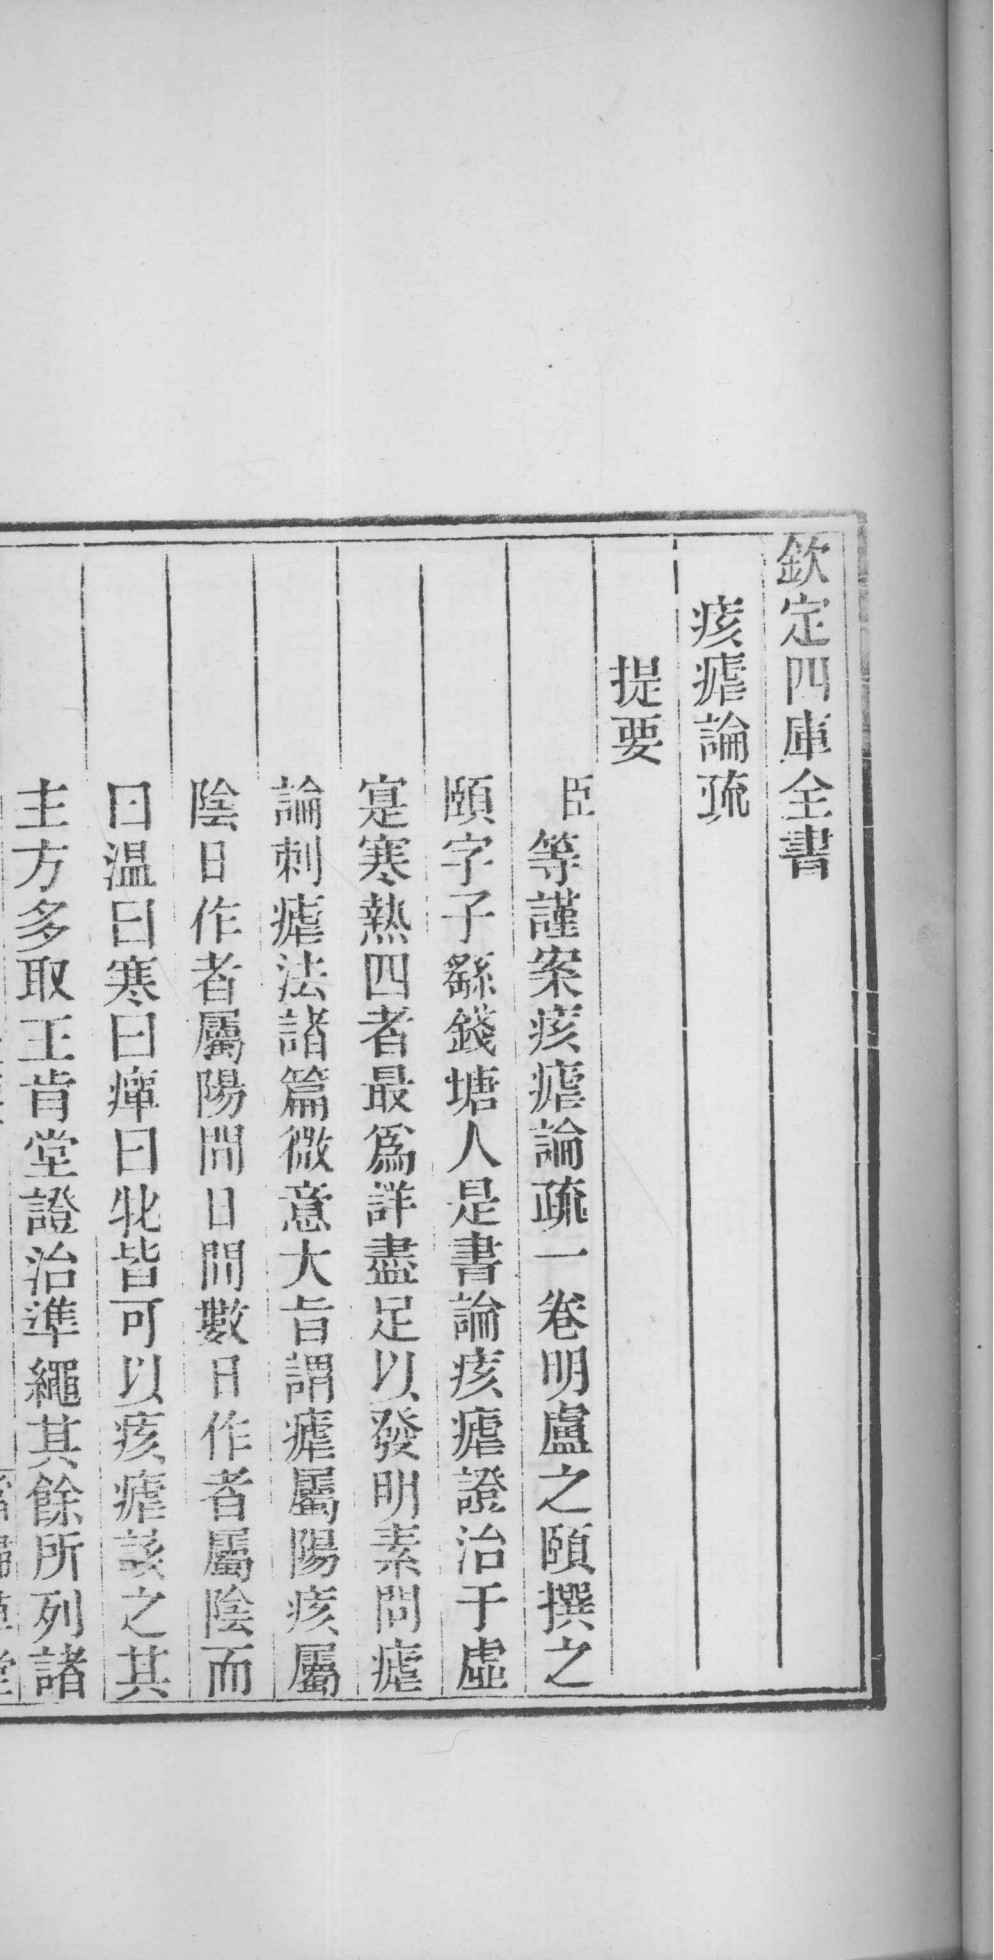 欽定四庫全書
痎瘧論疏
提要
臣等謹案痎瘧論疏一卷明盧之頤撰之
頤字子繇錢塘人是書論痎瘧證治于虛
寔寒熱四者最爲詳盡足以發明素問瘧
論刺瘧法諸篇微意大旨謂瘧屬陽痎屬
陰日作者屬陽間日間數日作者屬陰而
曰溫曰寒曰癉曰牝皆可以痎瘧該之其
主方多取王肯堂證治準繩其餘所列諸
當歸草堂